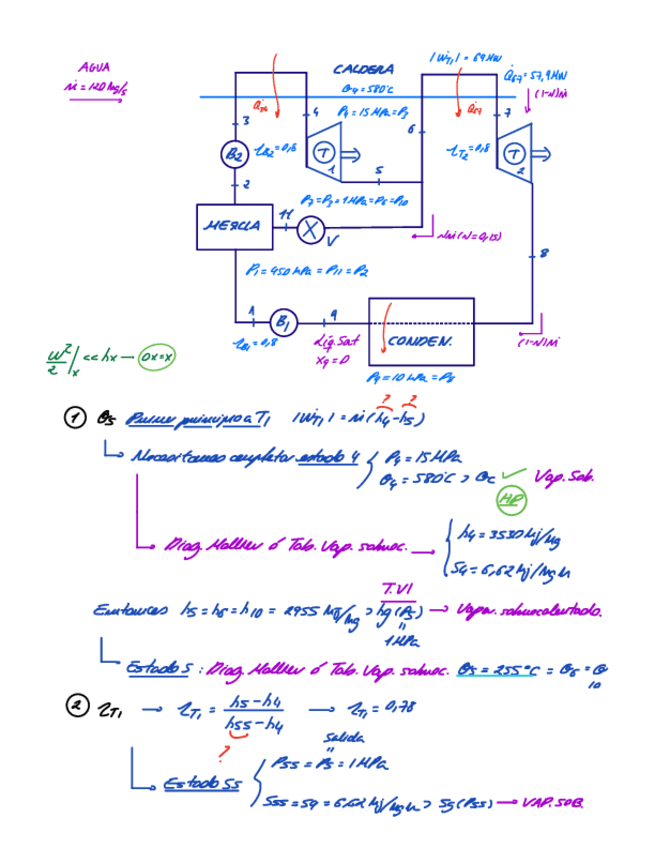 AGUA
ṁ = 120 kg/s
CALDERA
θ4 = 580°C
P4 = 15 MPa = P3
|ẆT1| = 69 MW
Q̇67 = 57,9 MW
(1-N)ṁ
Q̇34
Q̇67
3
4
6
7
B2
ηB2 = 0,8
T
1
ηT2 = 0,8
T
2
2
5
P7 = P5 = 1 MPa = P6 = P10
MEZCLA
11
X
V
Nṁ (N = 0,15)
P1 = 450 kPa = P11 = P2
8
1
B1
9
ηB1 = 0,8
Líq. Sat
X9 = 0
CONDEN.
(1-N)ṁ
P9 = 10 kPa = P8
w²/2 |x << hx → 0x = x
① θ5 Primer principio a T1 |ẆT1| = ṁ (h4 - h5)
? ?
Necesitamos completar estado 4 { P4 = 15 MPa
θ4 = 580°C > θc ✓ Vap. Sob.
HP
Diag. Mollier ó Tab. Vap. sobrec. → { h4 = 3530 kJ/kg
S4 = 6,62 kJ/kg K
T.VI
Entonces h5 = h6 = h10 = 2955 kJ/kg > hg (P5) → Vapor sobrecalentado.
"
1 MPa
Estado 5 : Diag. Mollier ó Tab. Vap. sobrec. θ5 = 255°C = θ6 = θ10
② ηT1 → ηT1 = (h5 - h4) / (h5s - h4) → ηT1 = 0,78
?
Salida
"
Estado 5s { P5s = P5 = 1 MPa
S5s = S4 = 6,62 kJ/kg K > Sg (P5s) → VAP. SOB.